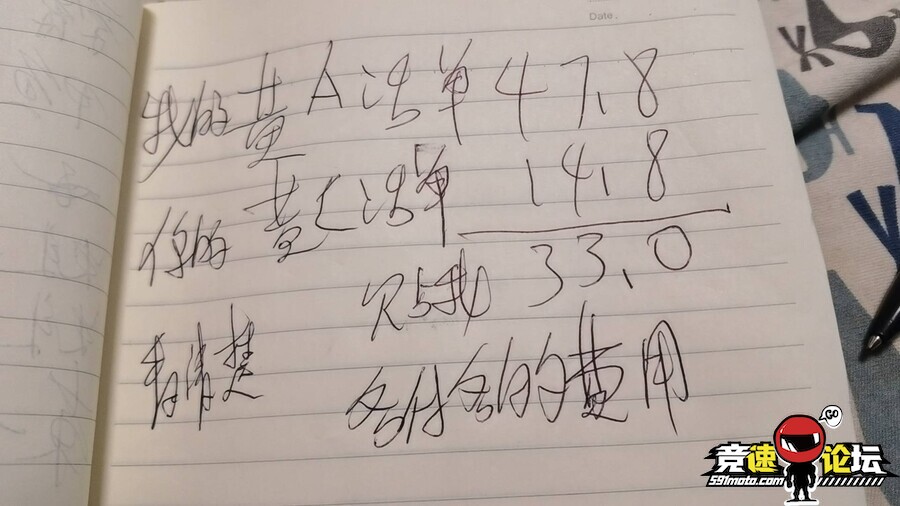 Date.
我的黄A法单 47.8
你的黄 法单 14.8
欠与我 33.0
看清楚
各付各的费用
GO
竞速论坛
591moto.com